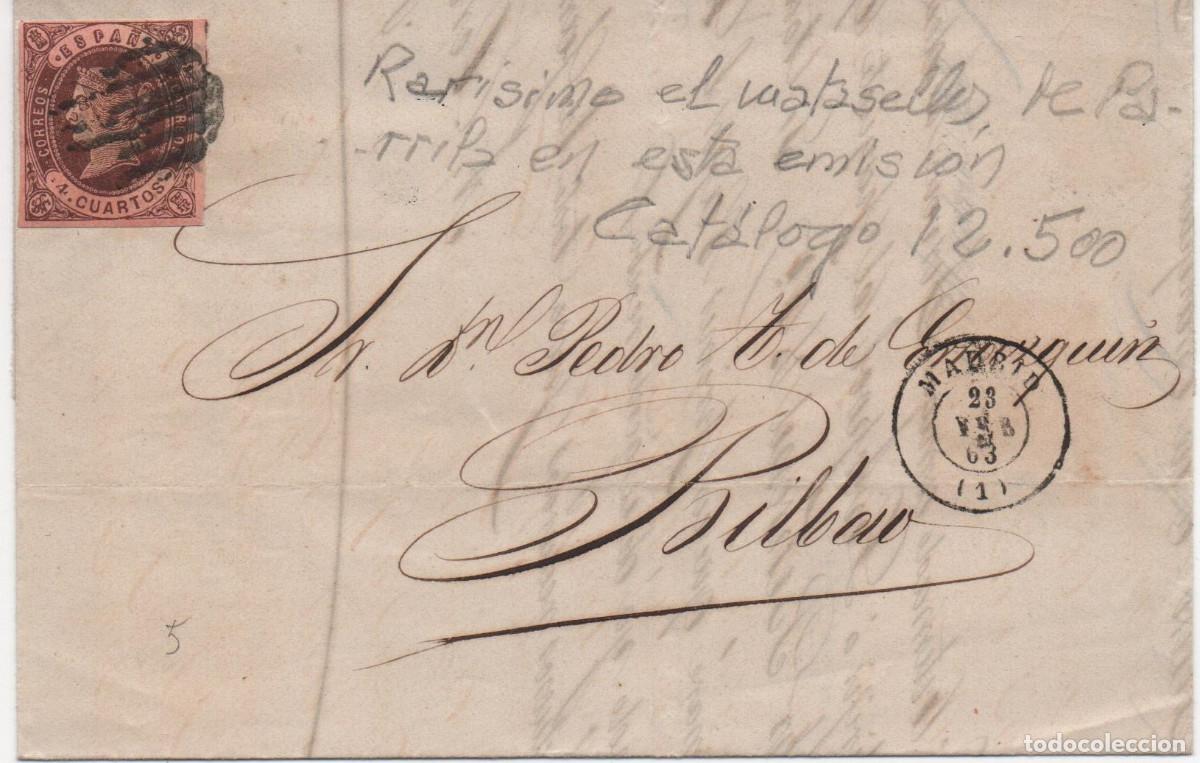 ESPAÑA
CORREOS
4. CUARTOS
Rarisimo el matasellos de Pa-
-rrilla en esta emisión
Catálogo 12.500
Sr. Dn. Pedro A. de
Bilbao
23
FEB
63
(1)
5
todocoleccion